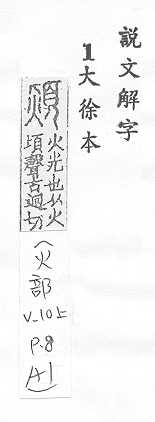 說文解字
1大徐本
熲
火光也从火
頃聲古迥切
(火部
V_10上
P.8
A1)